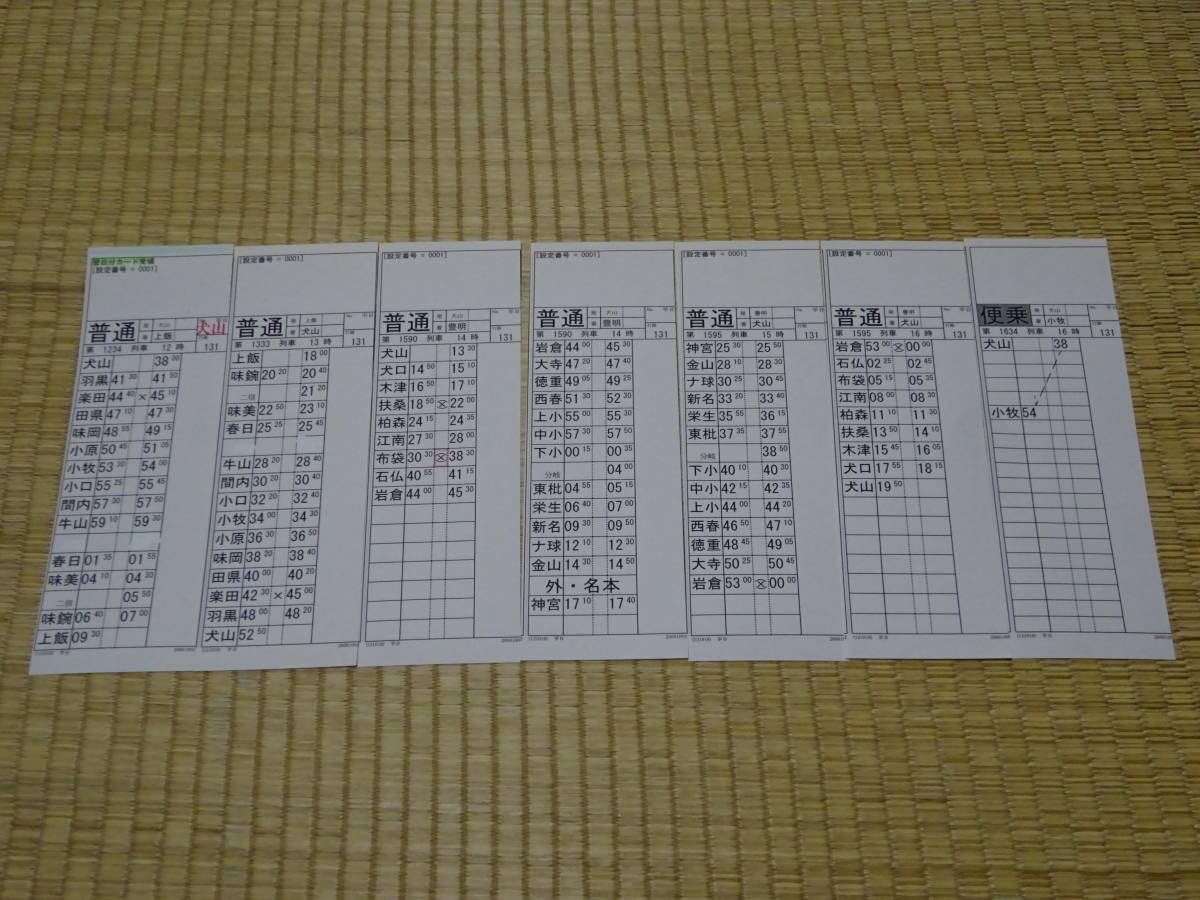 翌日分カード受領
[設定番号 = 0001]
普通 犬山 上飯 犬山
第 1234 列車 12 時 131
犬山 38 00
羽黒 41 30 41 50
楽田 44 40 × 45 10
田県 47 10 47 30
味岡 48 55 49 15
小原 50 45 51 05
小牧 53 30 54 00
小口 55 25 55 45
間内 57 30 57 50
牛山 59 10 59 30
春日 01 35 01 55
味美 04 10 04 30
05 50
味鋺 06 40 07 00
上飯 09 30
[設定番号 = 0001]
普通 上飯 犬山
第 1333 列車 13 時 131
上飯 18 00
味鋺 20 20 20 40
21 20
味美 22 50 23 10
春日 25 25 25 45
牛山 28 20 28 40
間内 30 20 30 40
小口 32 20 32 40
小牧 34 00 34 30
小原 36 30 36 50
味岡 38 20 38 40
田県 40 00 40 20
楽田 42 30 × 45 00
羽黒 48 00 48 20
犬山 52 50
[設定番号 = 0001]
普通 犬山 豊明
第 1590 列車 14 時 131
犬山 13 30
犬口 14 50 15 10
木津 16 50 17 10
扶桑 18 50 22 00
柏森 24 15 24 35
江南 27 30 28 00
布袋 30 30 38 30
石仏 40 55 41 15
岩倉 44 00 45 30
[設定番号 = 0001]
普通 犬山 豊明
第 1590 列車 14 時 131
岩倉 44 00 45 30
大寺 47 20 47 40
徳重 49 05 49 25
西春 51 30 52 30
上小 55 00 55 30
中小 57 30 57 50
下小 00 15 00 35
分岐 04 00
東枇 04 55 05 15
栄生 06 40 07 00
新名 09 30 09 50
ナ球 12 10 12 30
金山 14 30 14 50
外・名本
神宮 17 10 17 40
[設定番号 = 0001]
普通 豊明 犬山
第 1595 列車 15 時 131
神宮 25 30 25 50
金山 28 10 28 30
ナ球 30 25 30 45
新名 33 20 33 40
栄生 35 55 36 15
東枇 37 35 37 55
分岐 38 50
下小 40 10 40 30
中小 42 15 42 35
上小 44 00 44 20
西春 46 50 47 10
徳重 48 45 49 05
大寺 50 25 50 45
岩倉 53 00 00 00
[設定番号 = 0001]
普通 豊明 犬山
第 1595 列車 16 時 131
岩倉 53 00 00 00
石仏 02 25 02 45
布袋 05 15 05 35
江南 08 00 08 30
柏森 11 10 11 30
扶桑 13 50 14 10
木津 15 45 16 05
犬口 17 55 18 15
犬山 19 50
便乗 犬山 小牧
第 1634 列車 16 時 131
犬山 38
小牧 54